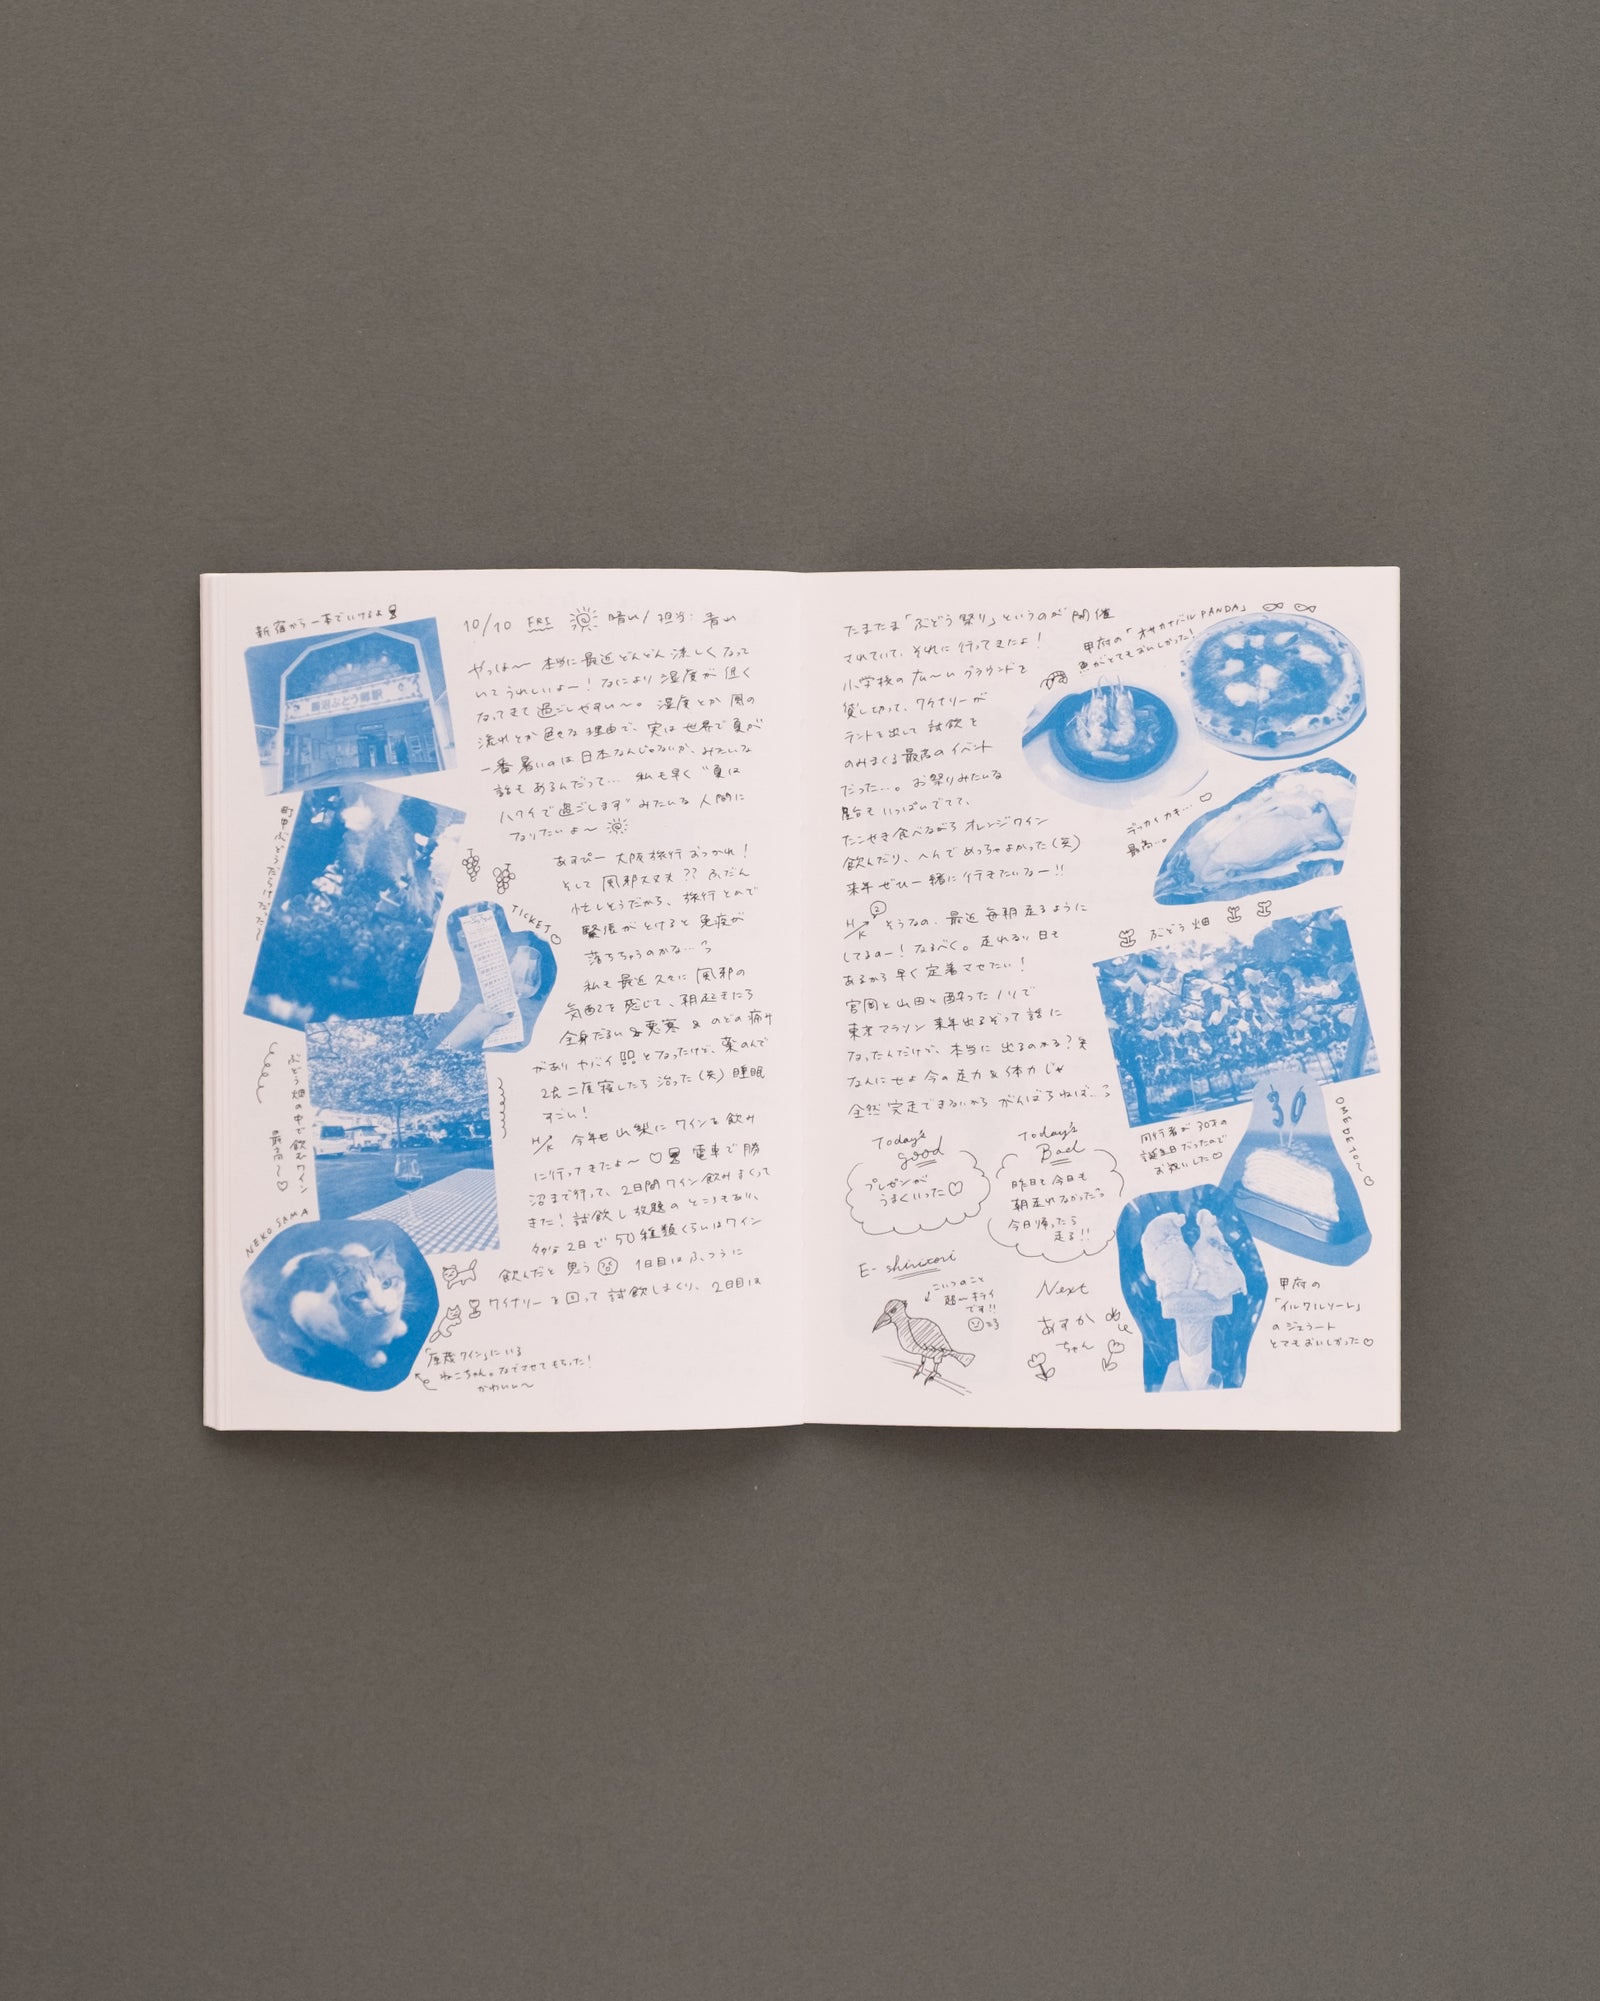 新宿から一本でいけるよ
勝沼ぶどう郷駅
町中ぶどうだらけ
TICKET
ぶどう畑の中で飲むワイン
最高〜♡
NEKO SAMA
「原茂ワイン」にいる
ねこちゃん。なでさせてもらった!
かわいい〜
10/10 FRI 晴れ/担当:青山
やっほ〜 本当に最近どんどん涼しくなって
いてうれしいよー!なにより湿度が低く
なってきて過ごしやすい〜。湿度とか風の
流れとか色々な理由で、実は世界で夏が
一番暑いのは日本なんじゃないか、みたいな
話もあるんだって… 私も早く"夏は
ハワイで過ごします"みたいな人間に
なりたいよ〜
あすぴー大阪旅行おつかれ!
そして風邪大丈夫??ふだん
忙しそうだから、旅行とので
緊張がとけると免疫が
落ちちゃうのかな…
私も最近久々に風邪の
気配を感じて、朝起きたら
全身だるい&悪寒&のどの痛み
がありヤバイとなったけど、薬のんで
二度寝したら治った(笑)睡眠
すごい!
H/K 今年も山梨にワインを飲み
に行ってきたよ〜♡ 電車で勝
沼まで行って、2日間ワイン飲みまくって
きた!試飲し放題のところもあり、
多分2日で50種類くらいはワイン
飲んだと思う 1日目はふつうに
ワイナリーを回って試飲しまくり、2日目は
たまたま「ぶどう祭り」というのが開催
されていて、それに行ってきたよ!
小学校の広〜いグラウンドを
貸し切って、ワイナリーが
テントを出して試飲を
のみまくる最高のイベント
だった…。お祭りみたいな
屋台もいっぱいでてて、
たこやき食べながらオレンジワイン
飲んだり、へんでめっちゃよかった(笑)
来年ぜひ一緒に行きたいなー!!
H/K ② そうなの、最近毎朝走るように
してるのー!なるべく。走れない日も
あるから早く定着させたい!
宮岡と山田と酔ったノリで
東京マラソン来年出るぞって話に
なったんだけど、本当に出るのかな?笑
なんにせよ今の走力&体力じゃ
全然完走できないからがんばらねば…
Today's
good
プレゼンが
うまくいった♡
Today's
Bad
昨日も今日も
朝走れなかった
今日帰ったら
走る!!
E-shiritori
こいつのこと
超〜キライ
です!!
Next
あすか
ちゃん
甲府の「オサカナバル PANDA」
魚がとてもおいしかった!
デッカイカキ…♡
最高…。
ぶどう畑
30
OMEDETO〜♡
同行者が30才の
誕生日だったので
お祝いした♡
甲府の
「イルクルソーレ」
のジェラート
とてもおいしかった♡